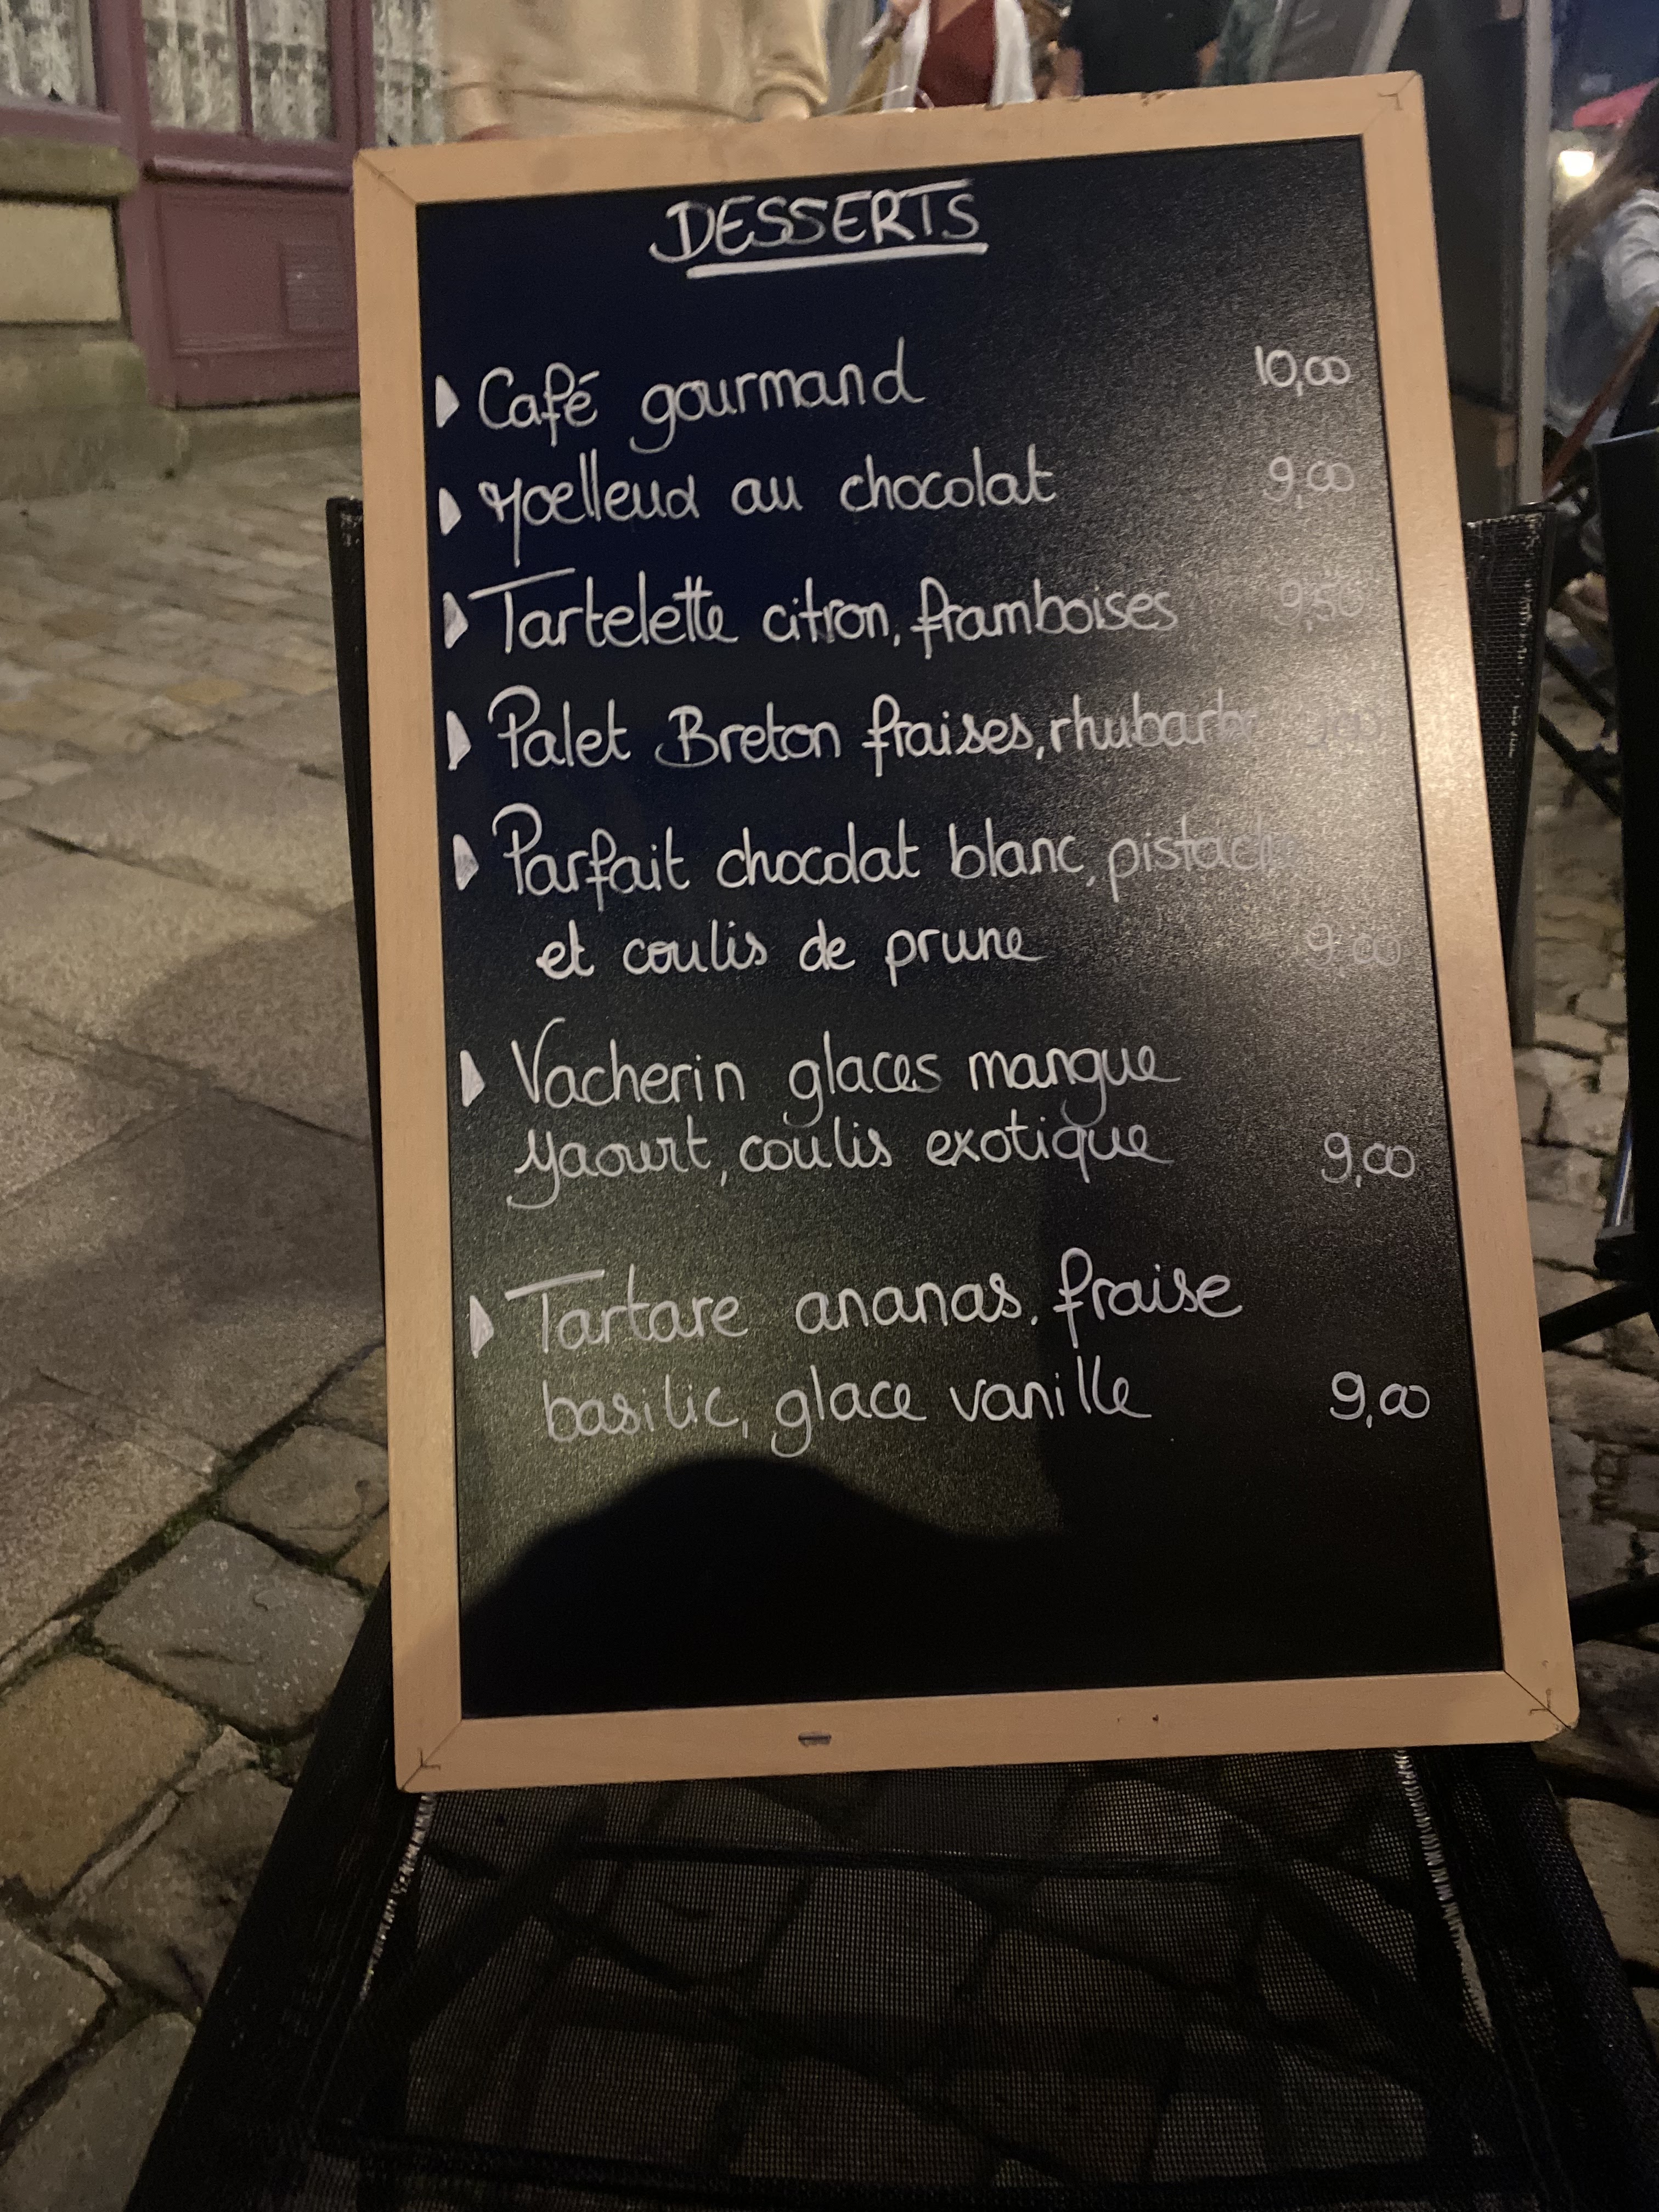 DESSERTS
Café gourmand 10,00
Moelleux au chocolat 9,00
Tartelette citron, framboises 9,50
Palet Breton fraises, rhubarbe
Parfait chocolat blanc, pistache
et coulis de prune 9,00
Vacherin glaces mangue
yaourt, coulis exotique 9,00
Tartare ananas, fraise
basilic, glace vanille 9,00